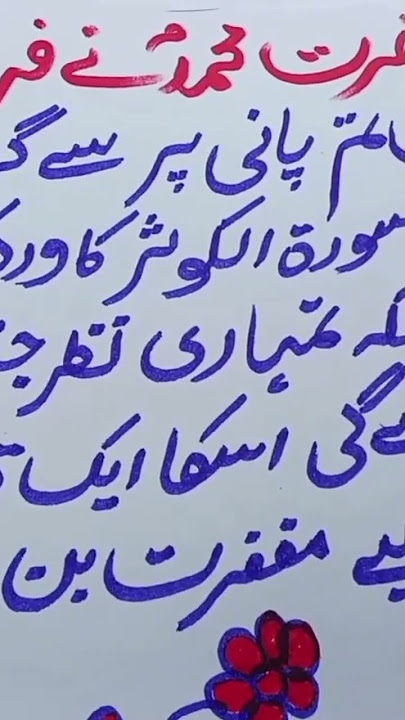 ضرت محمدؐ نے فر
پانی پر سے گ
سورۃ الکوثر کا ورد
کہ تمہاری نظر ج
ئے گی اسکا ایک
لیے مغفرت بن